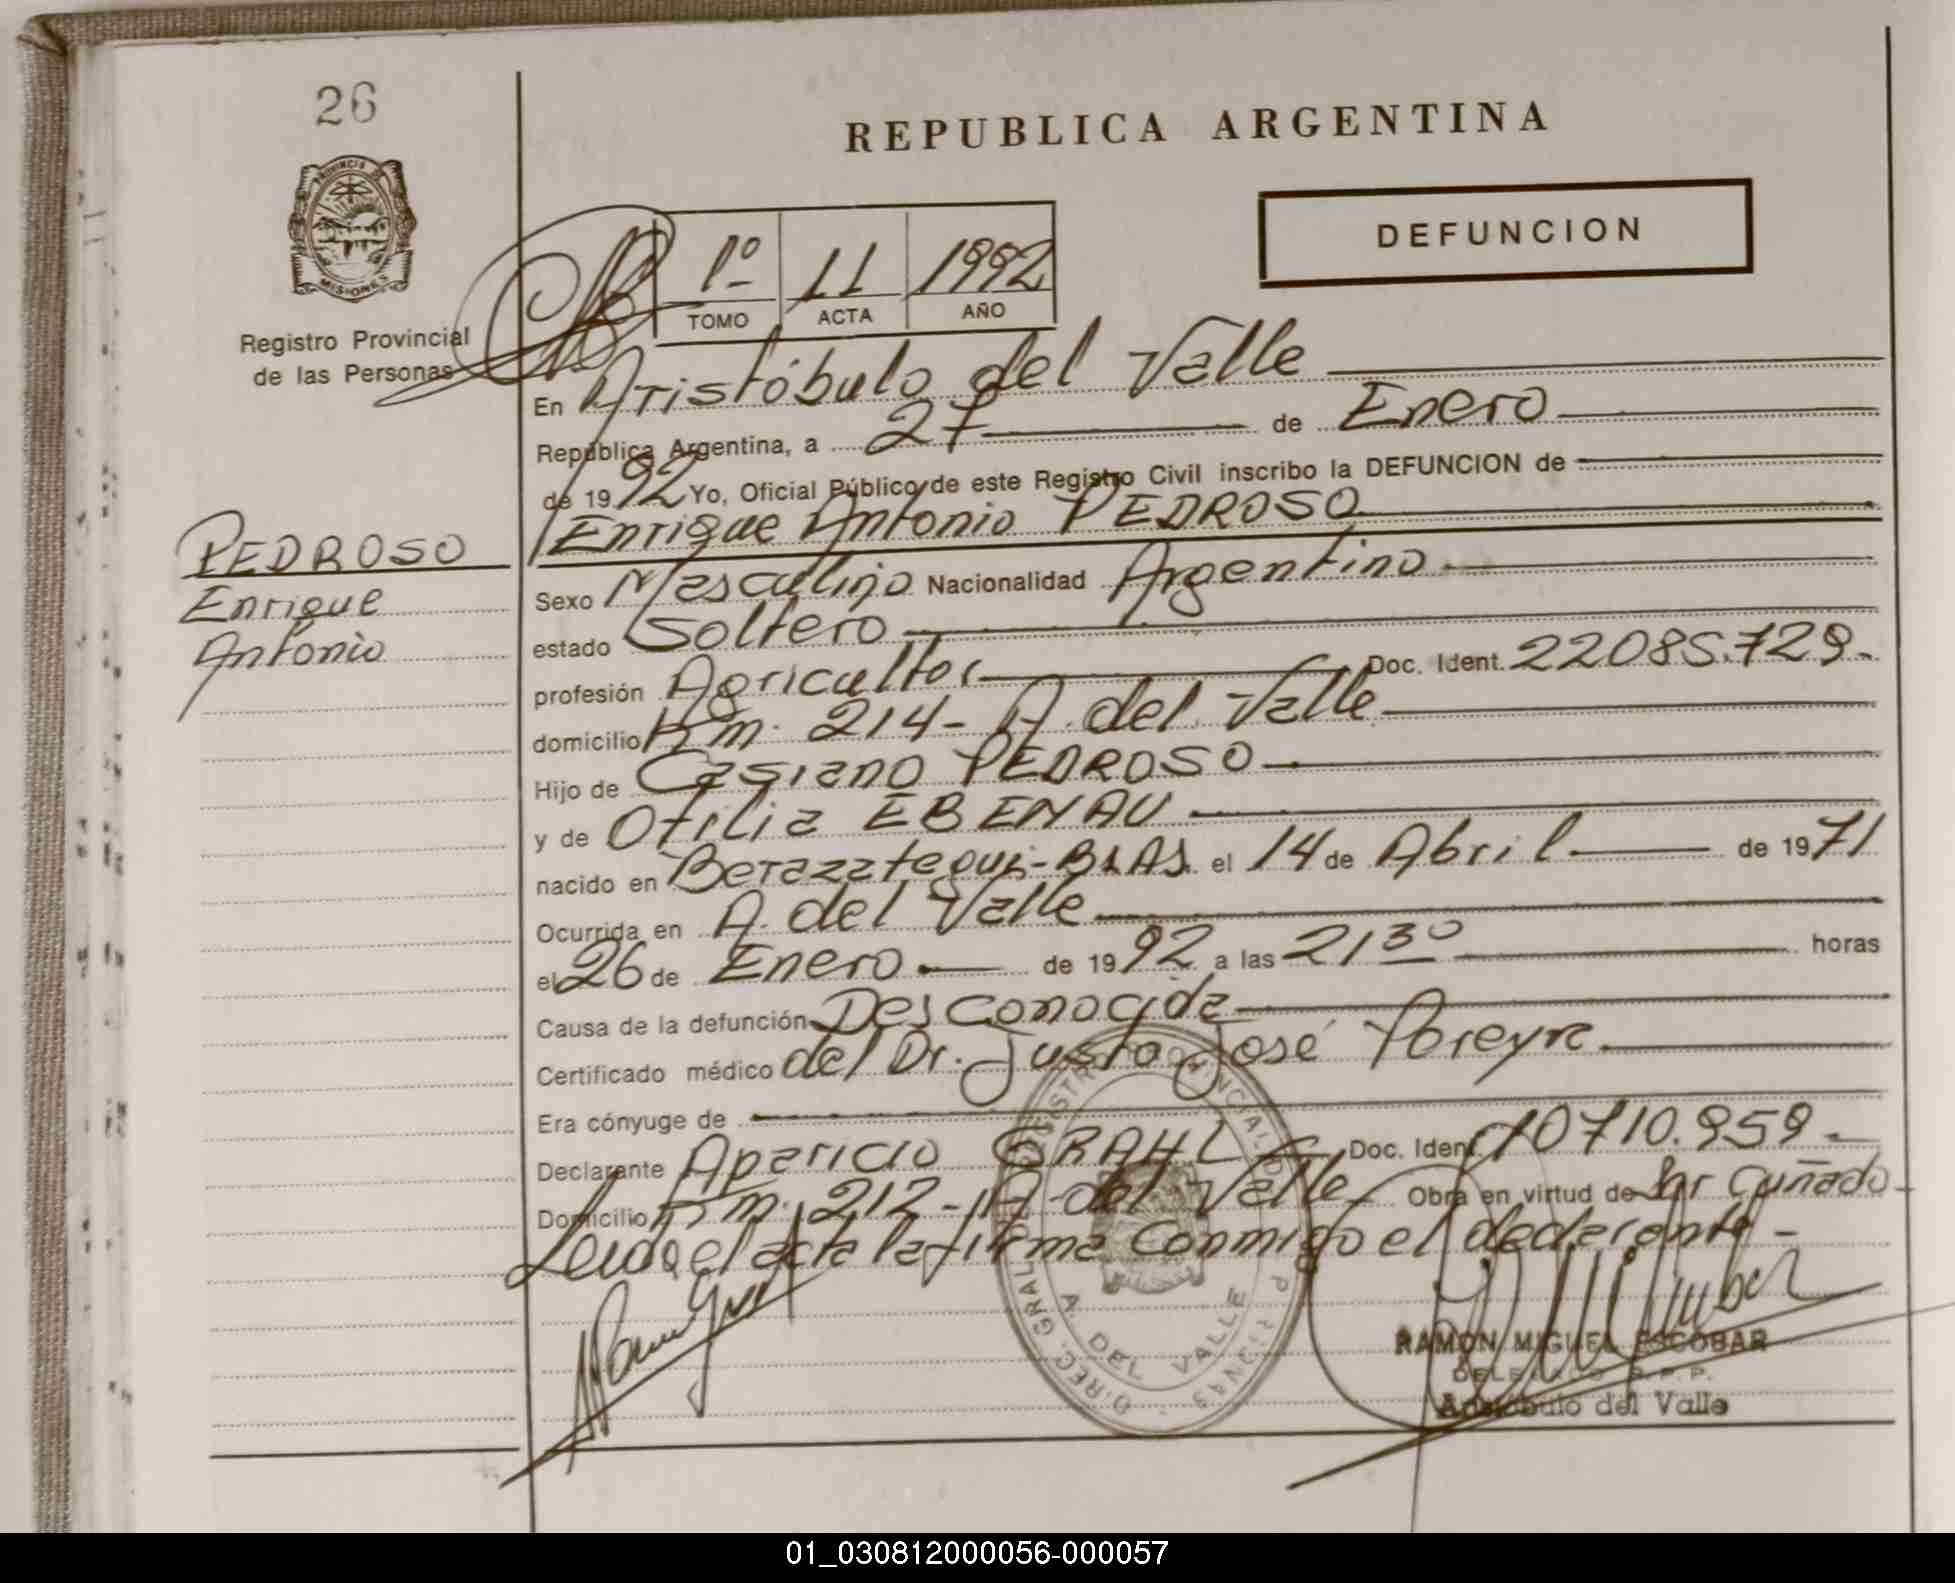 26
PROVINCIA DE
MISIONES
Registro Provincial
de las Personas
REPUBLICA ARGENTINA
DEFUNCION
1º 11 1992
TOMO ACTA AÑO
En Aristóbulo del Valle
República Argentina, a 27 de Enero
de 1992 Yo, Oficial Público de este Registro Civil inscribo la DEFUNCION de
Enrique Antonio PEDROSO
PEDROSO
Enrique
Antonio
Sexo Masculino Nacionalidad Argentino
estado Soltero
profesión Agricultor Doc. Ident. 22085.729.
domicilio Km. 214- A. del Valle
Hijo de Casiano PEDROSO
y de Otilia EBENAU
nacido en Berazategui-Bs.As. el 14 de Abril de 1971
Ocurrida en A. del Valle
el 26 de Enero de 1992 a las 21 30 horas
Causa de la defunción Desconocida
Certificado médico del Dr. Justo José Pereyra
Era cónyuge de
Declarante Aparicio GRAHL Doc. Ident. 10710.959
Domicilio Km. 212- A. del Valle Obra en virtud de Ser Cuñado
Leida el acta la firma conmigo el declarante-
A. DEL VALLE
RAMON MIGUEL ESCOBAR
DELEGADO R.P.P.
Aristóbulo del Valle
01_030812000056-000057